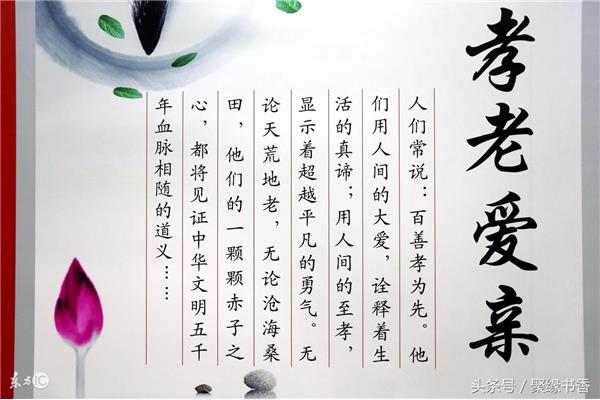 孝老爱亲
人们常说：百善孝为先。他
们用人间的大爱，诠释着生
活的真谛；用人间的至孝，
显示着超越平凡的勇气。无
论天荒地老，无论沧海桑
田，他们的一颗颗赤子之
心，都将见证中华文明五千
年血脉相随的道义……
东方IC
头条号／聚缘书香